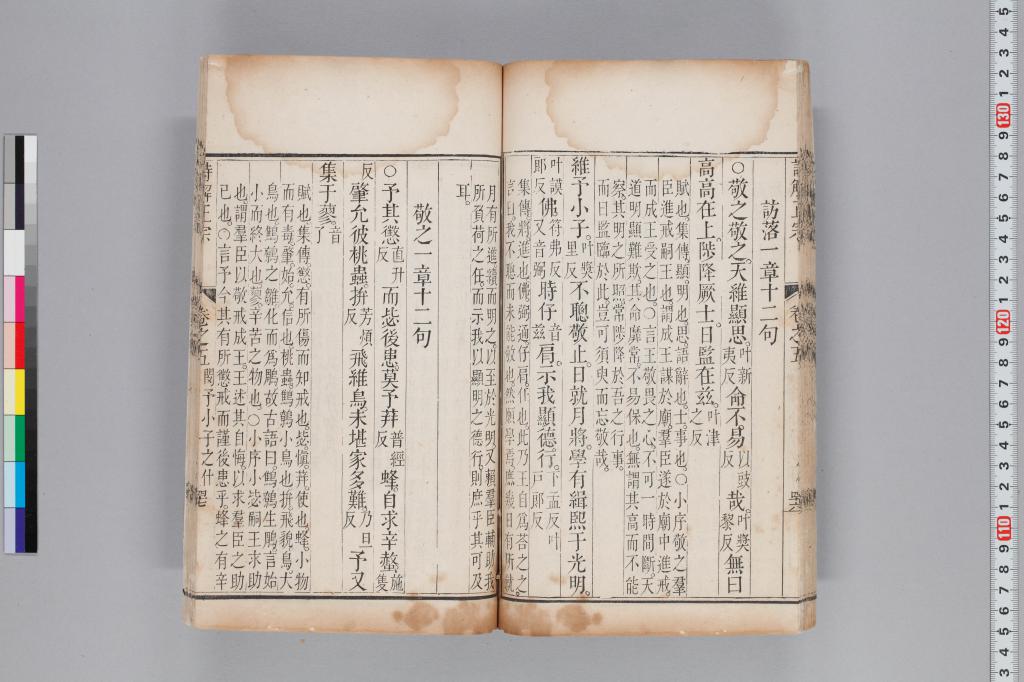 訪落一章十二句
○敬之敬之天維顯思叶新夷反命不易以豉反哉叶獎黎反無曰
高高在上陟降厥士日監在兹叶津之反
賦也集傳顯明也思語辭也士事也○小序敬之羣
臣進戒嗣王也謂成王謀於廟羣臣遂於廟中進戒
而成王受之也○言王敬畏之心不可一時間斷天
道明顯難欺其命靡常不易保也無謂其高而不能
察其明之所照常陟降於吾之行事
而日監臨於此豈可須臾而忘敬哉
維予小子叶獎里反不聰敬止日就月將學有緝熙于光明
叶謨郎反佛符弗反又音弼時仔音兹肩示我顯德行下孟反叶戸郎反
集傳將進也佛弼通仔肩任也此乃王自為荅之之
言曰我不聰而未能敬也然願學焉庶幾日有所就
月有所進續而明之以至於光明又賴羣臣輔助我
所負荷之任而示我以顯明之德行則庶乎其可及
耳
敬之一章十二句
○予其懲直升反而毖後患莫予荓普經反蜂自求辛螫施隻
反肇允彼桃蟲拚芳煩反飛維鳥未堪家多難乃旦反予又
集于蓼音了
賦也集傳懲有所傷而知戒也毖慎荓使也蜂小物
而有毒肇始允信也桃蟲鷦鷯小鳥也拚飛貌鳥大
鳥也鷦鷯之雛化而爲鵰故古語曰鷦鷯生鵰言始
小而終大也蓼辛苦之物也○小序小毖嗣王求助
也謂羣臣以敬戒成王王述其自悔以求羣臣之助
已也○言予今其有所懲戒而謹後患乎蜂之有辛
詩解正宗 卷之五 閔予小子之什